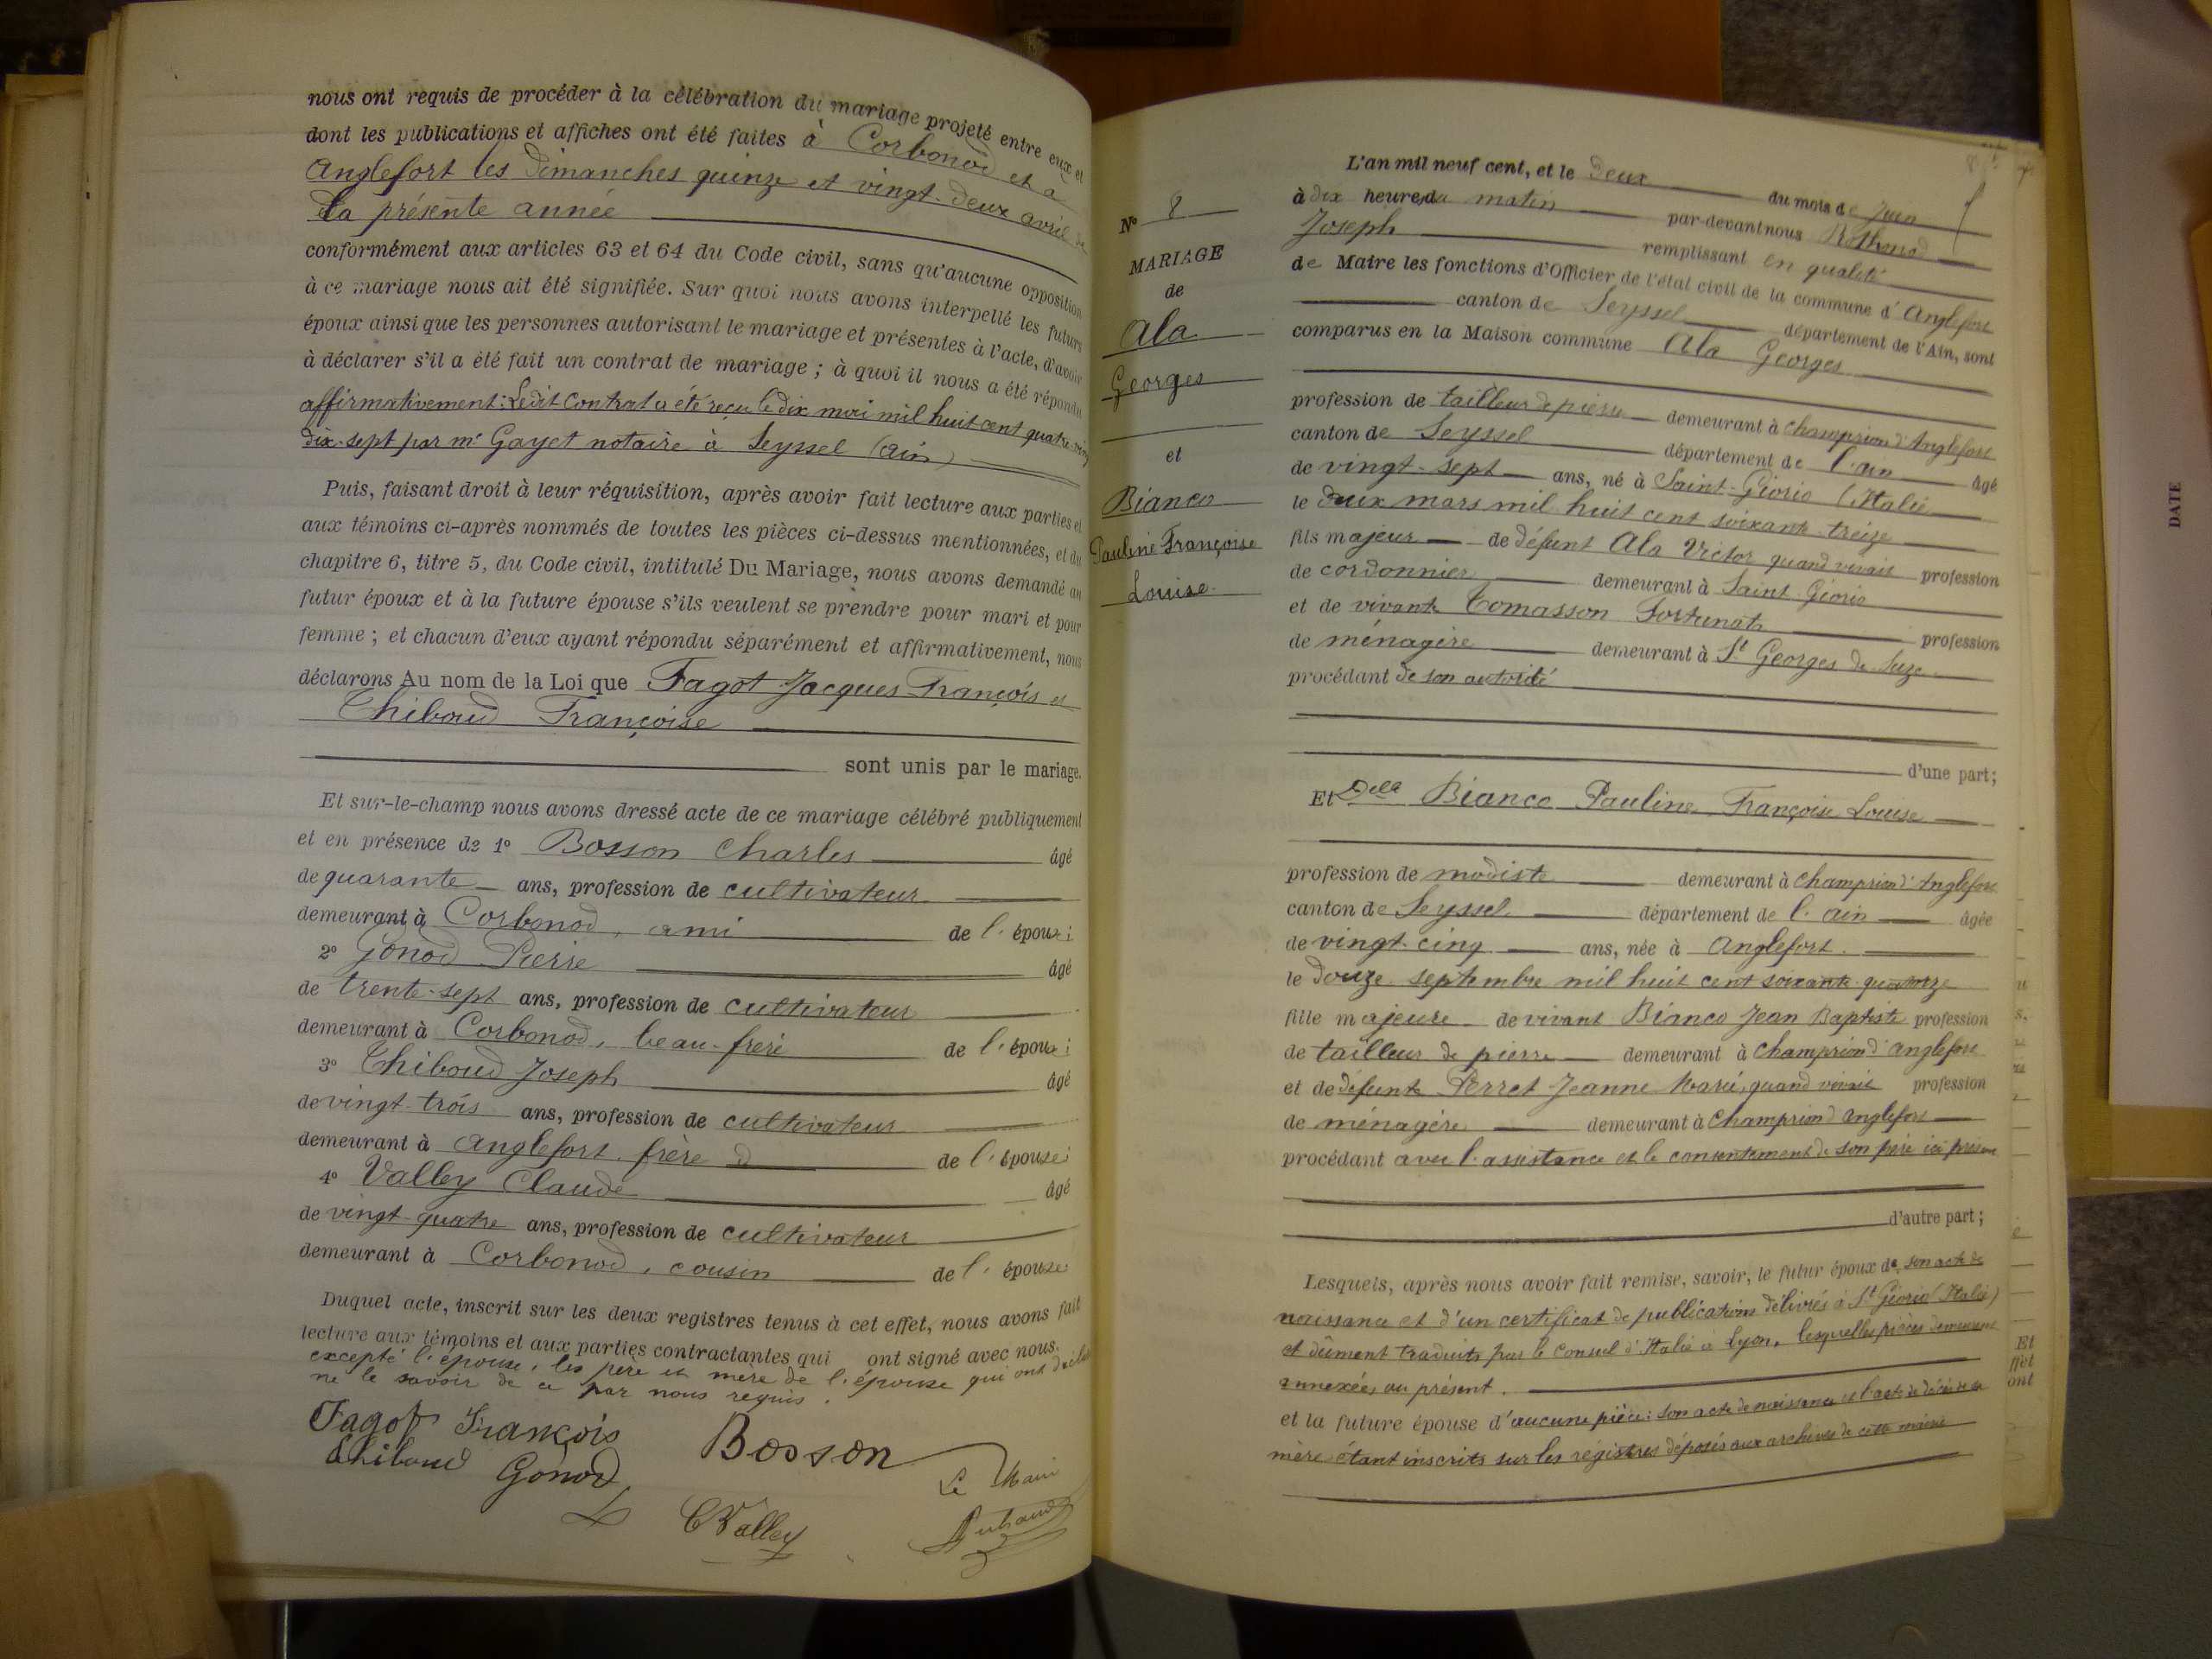 nous ont requis de procéder à la célébration du mariage projeté entre eux et
dont les publications et affiches ont été faites à Corbonod et à
Anglefort les Dimanches quinze et vingt-deux avril de
la présente année
conformément aux articles 63 et 64 du Code civil, sans qu'aucune opposition
à ce mariage nous ait été signifiée. Sur quoi nous avons interpellé les futurs
époux ainsi que les personnes autorisant le mariage et présentes à l'acte, d'avoir
à déclarer s'il a été fait un contrat de mariage ; à quoi il nous a été répondu
affirmativement: Ledit Contrat a été reçu le dix mai mil huit cent quatre-vingt
dix-sept par me Gayet notaire à Seyssel (ain)
Puis, faisant droit à leur réquisition, après avoir fait lecture aux parties et
aux témoins ci-après nommés de toutes les pièces ci-dessus mentionnées, et du
chapitre 6, titre 5, du Code civil, intitulé Du Mariage, nous avons demandé au
futur époux et à la future épouse s'ils veulent se prendre pour mari et pour
femme ; et chacun d'eux ayant répondu séparément et affirmativement, nous
déclarons Au nom de la Loi que Fagot Jacques François et
Thiboud Françoise
sont unis par le mariage.
Et sur-le-champ nous avons dressé acte de ce mariage célébré publiquement
et en présence de 1° Bosson Charles âgé
de quarante ans, profession de cultivateur
demeurant à Corbonod, ami de l'époux;
2° Gonod Pierre âgé
de trente-sept ans, profession de cultivateur
demeurant à Corbonod, beau-frère de l'époux;
3° Thiboud Joseph âgé
de vingt-trois ans, profession de cultivateur
demeurant à Anglefort frère de l'épouse;
4° Valley Claude âgé
de vingt-quatre ans, profession de cultivateur
demeurant à Corbonod, cousin de l'épouse
Duquel acte, inscrit sur les deux registres tenus à cet effet, nous avons fait
lecture aux témoins et aux parties contractantes qui ont signé avec nous.
excepté l'épouse, les père et mère de l'épouse qui ont déclaré
ne le savoir de ce par nous requis.
Fagot François
Bosson
Thiboud
Gonod
Le Maire
C Valley
N° 8
MARIAGE
de
Ala
Georges
et
Bianco
Pauline Françoise
Louise
L'an mil neuf cent, et le deux du mois de Juin
à dix heures du matin par-devant nous Rothonod
Joseph remplissant en qualité
de Maire les fonctions d'Officier de l'état civil de la commune d'Anglefort
canton de Seyssel département de l'Ain, sont
comparus en la Maison commune Ala Georges
profession de tailleur de pierre demeurant à Champriond d'Anglefort
canton de Seyssel département de l'ain âgé
de vingt-sept ans, né à Saint-Giorio (Italie
le deux mars mil huit cent soixante treize
fils majeur de défunt Ala Victor quand vivait profession
de cordonnier demeurant à Saint-Giorio
et de vivante Tomasson Fortunate profession
de ménagère demeurant à St Georges de Suze
procédant de son autorité
d'une part;
Et Delle Bianco Pauline Françoise Louise
profession de modiste demeurant à Champriond d'Anglefort
canton de Seyssel département de l'ain âgée
de vingt-cinq ans, née à Anglefort
le douze septembre mil huit cent soixante quatorze
fille majeure de vivant Bianco Jean Baptiste profession
de tailleur de pierre demeurant à Champriond d'Anglefort
et de défunte Perret Jeanne Marie, quand vivait profession
de ménagère demeurant à Champriond Anglefort
procédant avec l'assistance et le consentement de son père ici présent
d'autre part ;
Lesquels, après nous avoir fait remise, savoir, le futur époux de son acte de
naissance et d'un certificat de publications délivrés à St Giorio (Italie)
et dûment traduits par le Consul d'Italie à Lyon, lesquelles pièces demeurent
annexées au présent.
et la future épouse d'aucune pièce: son acte de naissance et l'acte de décès de sa
mère étant inscrits sur les régistres déposés aux archives de cette mairie
Et
ffet
ont
DATE